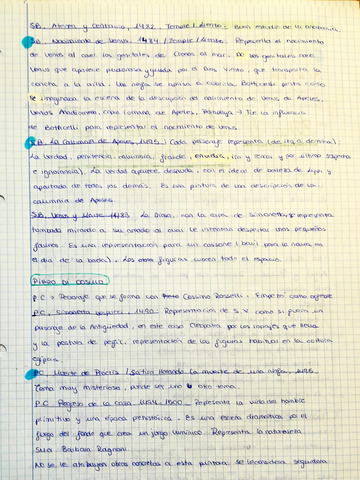 S.B, Atenea y Centauro, 1482. Temple / Lienzo: Buen estudio de la anatomía.
S.B, Nacimiento de Venus, 1484 / Temple / Lienzo. Representa el nacimiento
de Venus al caer los genitales de Cronos al mar. De los genitales nace
Venus que aparece pudorosa y ayudada por el dios viento, que transporta la
concha a la orilla. Una ninfa se aproxima a cubrirla. Botticelli pinta como
se imaginaba la escena de la descripción del nacimiento de Venus de Apeles,
Venus Anadiomena, copia romana de Apeles, Pompeya → Fue la influencia
de Botticelli para representar el nacimiento de Venus.
S.B, La Calumnia de Apeles, 1495: Cada personaje representa (de izq a derecha):
La verdad, penitencia, calumnia, fraude, envidia, ira y rencor y por último sospecha
e ignorancia). La verdad aparece desnuda, con el ideal de belleza de Lippi y
apartado de todas las demás. Es una pintura de una descripción de la
calumnia de Apeles.
S.B, Venus y Marte, 1483. La Diosa, con la cara de Simonetta, se representa
tumbada mirando a su amado al cual le intentan despertar unos pequeños
faunos. Es una representación para un cassone (baúl para la novia en
el día de la boda). Las otras figuras llenan todo el espacio.
PIERO DI COSIMO
P.C = Personaje que se forma con Cosimo Rosselli. Empezó como orfebre
P.C, Simonetta Vespucci, 1490. Representación de S.V como si fuera un
personaje de la Antigüedad, en este caso Cleopatra por los ropajes que lleva
y la postura de perfil, representación de las figuras habitual en la cultura
egipcia.
P.C, Muerte de Procris / Sátiro llorando la muerte de una ninfa, 1495
Tema muy misterioso, puede ser uno u otro tema.
P.C Regreso de la caza, 1500. Representa la vida del hombre
primitivo y una época prehistórica. Es una escena dramática por el
fuego del fondo que crea un juego lumínico. Representa la naturaleza
No se le atribuyen obras concretas a esta pintora. Se la considera seguidora